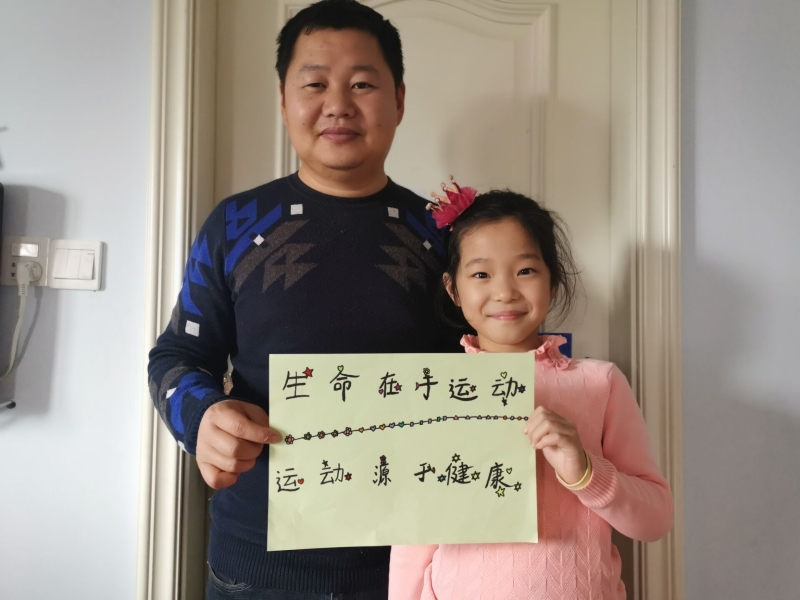 生命在于运动
运动源于健康